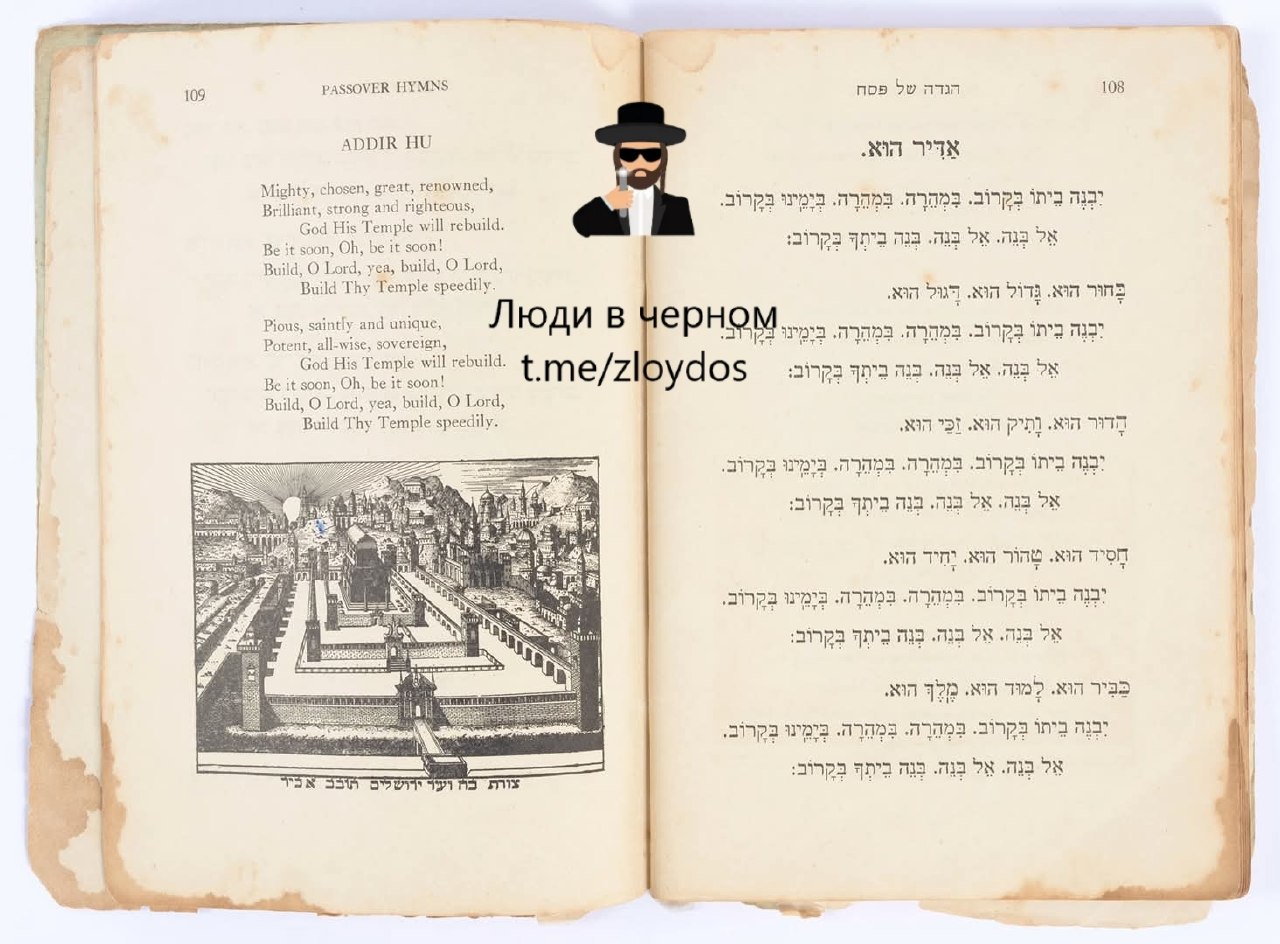 108
הגדה של פסח
אַדִּיר הוּא.
יִבְנֶה בֵיתוֹ בְּקָרוֹב. בִּמְהֵרָה. בִּמְהֵרָה. בְּיָמֵינוּ בְּקָרוֹב.
אֵל בְּנֵה. אֵל בְּנֵה. בְּנֵה בֵיתְךָ בְּקָרוֹב:
בָּחוּר הוּא. גָּדוֹל הוּא. דָּגוּל הוּא.
יִבְנֶה בֵיתוֹ בְּקָרוֹב. בִּמְהֵרָה. בִּמְהֵרָה. בְּיָמֵינוּ בְּקָרוֹב.
אֵל בְּנֵה. אֵל בְּנֵה. בְּנֵה בֵיתְךָ בְּקָרוֹב:
הָדוּר הוּא. וָתִיק הוּא. זַכַּי הוּא.
יִבְנֶה בֵיתוֹ בְּקָרוֹב. בִּמְהֵרָה. בִּמְהֵרָה. בְּיָמֵינוּ בְּקָרוֹב.
אֵל בְּנֵה. אֵל בְּנֵה. בְּנֵה בֵיתְךָ בְּקָרוֹב:
חָסִיד הוּא. טָהוֹר הוּא. יָחִיד הוּא.
יִבְנֶה בֵיתוֹ בְּקָרוֹב. בִּמְהֵרָה. בִּמְהֵרָה. בְּיָמֵינוּ בְּקָרוֹב.
אֵל בְּנֵה. אֵל בְּנֵה. בְּנֵה בֵיתְךָ בְּקָרוֹב:
כַּבִּיר הוּא. לָמוּד הוּא. מֶלֶךְ הוּא.
יִבְנֶה בֵיתוֹ בְּקָרוֹב. בִּמְהֵרָה. בִּמְהֵרָה. בְּיָמֵינוּ בְּקָרוֹב.
אֵל בְּנֵה. אֵל בְּנֵה. בְּנֵה בֵיתְךָ בְּקָרוֹב:
109
PASSOVER HYMNS
ADDIR HU
Mighty, chosen, great, renowned,
Brilliant, strong and righteous,
God His Temple will rebuild.
Be it soon, Oh, be it soon!
Build, O Lord, yea, build, O Lord,
Build Thy Temple speedily.
Pious, saintly and unique,
Potent, all-wise, sovereign,
God His Temple will rebuild.
Be it soon, Oh, be it soon!
Build, O Lord, yea, build, O Lord,
Build Thy Temple speedily.
צורת בה ועיר ירושלים תובב
Люди в черном
t.me/zloydos